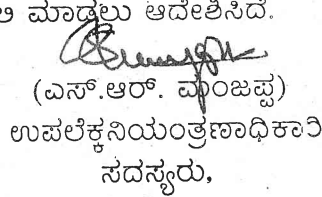 ಲಿ ಮಾಡಲು ಆದೇಶಿಸಿದೆ.
(ಎಸ್.ಆರ್. ಮಂಜಪ್ಪ)
ಉಪಲೆಕ್ಕನಿಯಂತ್ರಣಾಧಿಕಾರಿ
ಸದಸ್ಯರು,